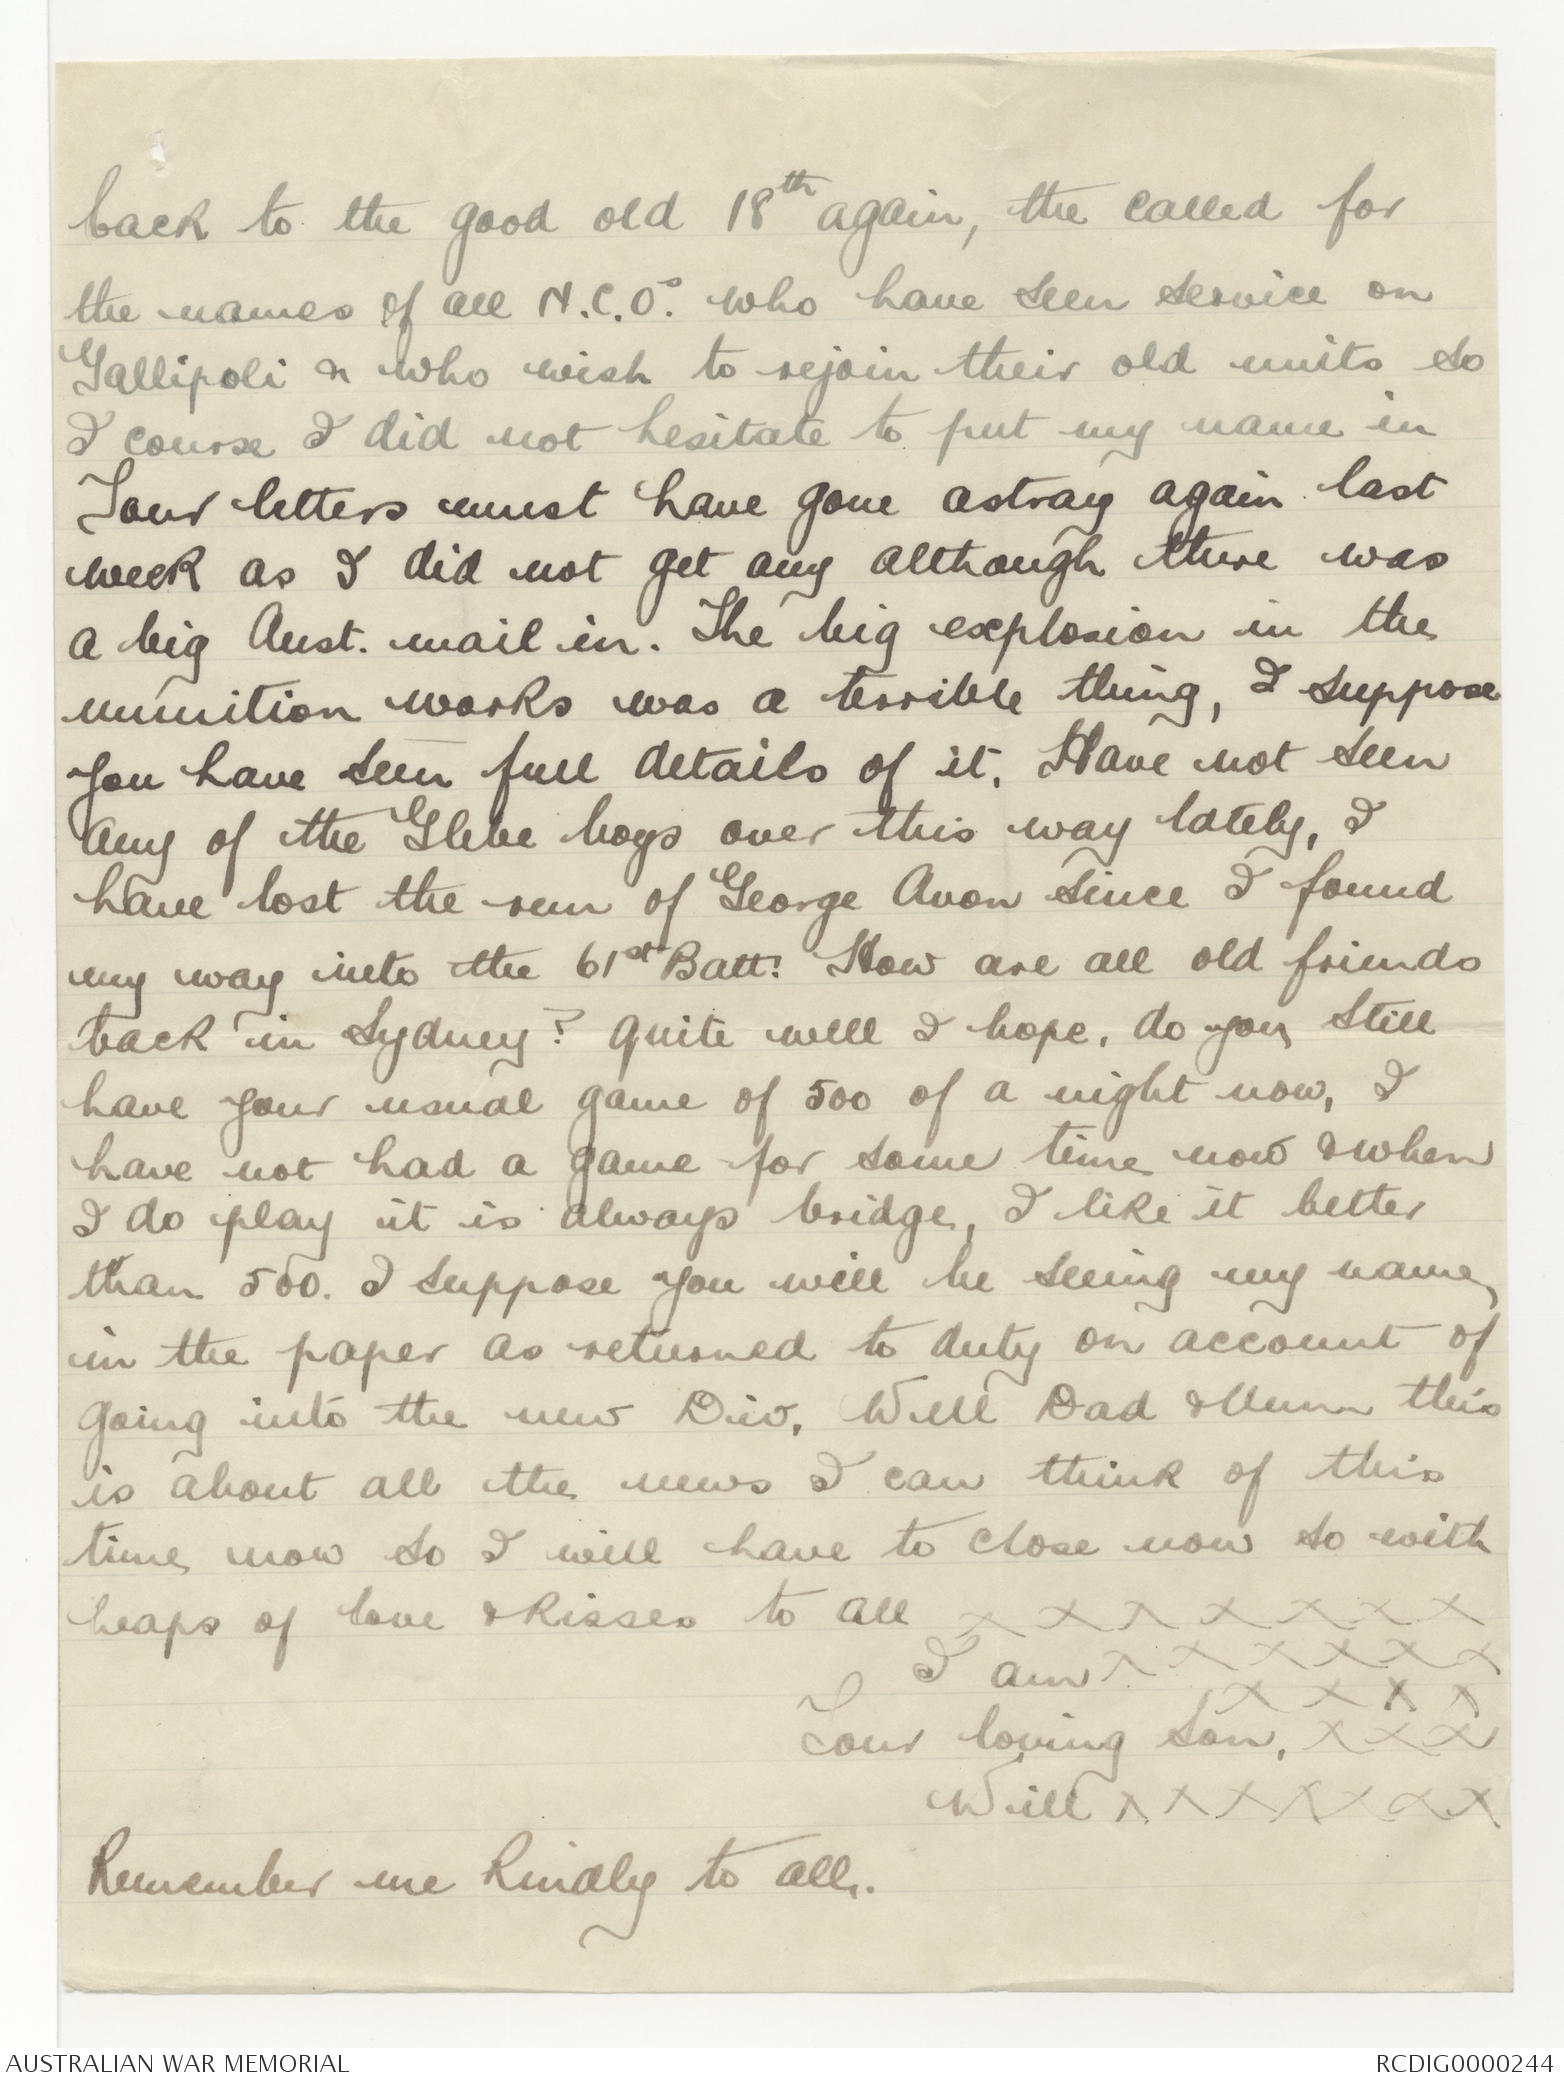 back to the good old 18th again, the called for
the names of all N.C.Os. who have seen service on
Gallipoli & who wish to rejoin their old units so
I course I did not hesitate to put my name in
Your letters must have gone astray again last
week as I did not get any although there was
a big Aust. mail in. The big explosion in the
munition works was a terrible thing, I suppose
you have seen full details of it. Have not seen
any of the Glebe boys over this way lately, I
have lost the run of George Avon since I found
my way into the 61st Batt. How are all old friends
back in Sydney? quite well I hope, do you still
have your usual game of 500 of a night now, I
have not had a game for some time now & when
I do play it is always bridge, I like it better
than 500. I suppose you will be seeing my name
in the paper as returned to duty on account of
going into the new Div. Well Dad & Mum this
is about all the news I can think of this
time now so I will have to close now so with
heaps of love & kisses to all x x x x x x x
I am x x x x x x
x x x x
Your loving Son, x x x
Will x x x x x x x
Remember me kindly to all.
AUSTRALIAN WAR MEMORIAL RCDIG0000244